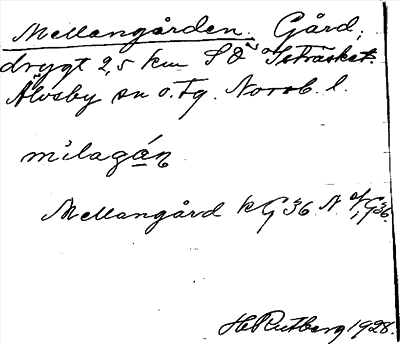 Mellangården. Gård,
drygt 2,5 km SÖ Isträsket.
Älvsby sn o. tg. Norrb. l.
mìlagán
Mellangård kG36 N
H Rutberg 1928.